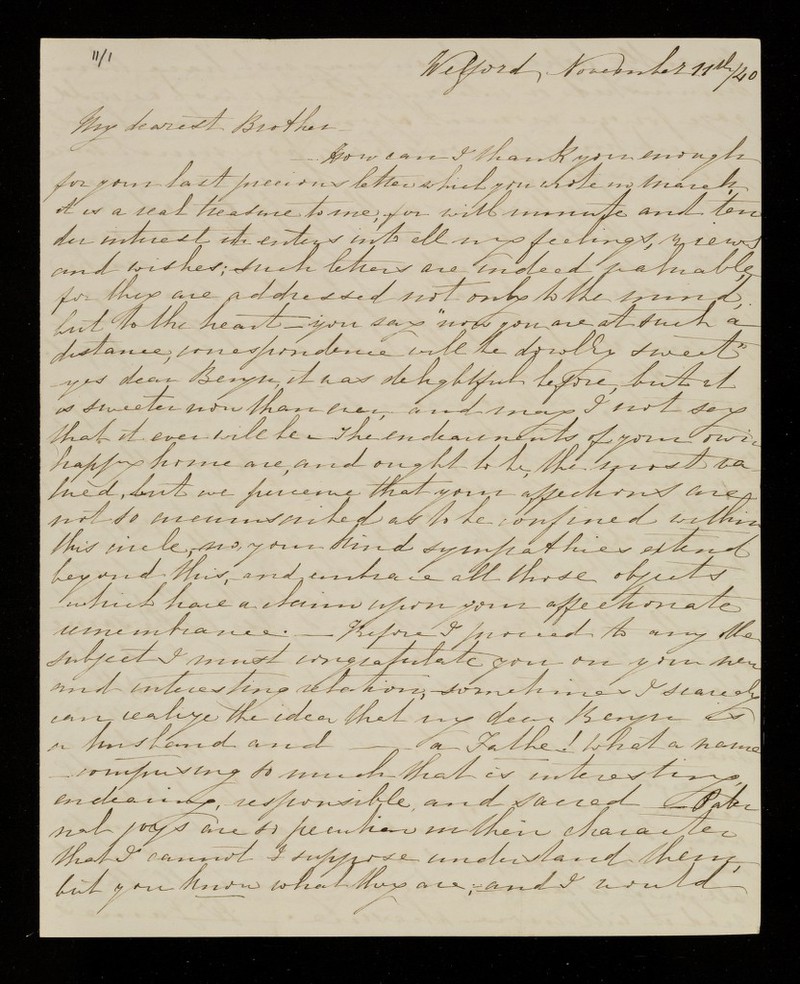 11/1
Welford, November 11th/40
My dearest Brother
How can I thank you enough
for your last precious letter which you wrote in March,
it is a real treasure to me, for with minute and ten
der interest it enters into all my feelings, views
and wishes; such letters are indeed valuable,
for they are addressed not only to the mind,
but to the heart – you say "now you are at such a
distance, correspondence will be doubly sweet"
yes dear Benjn, it was delightful before, but it
is sweeter now than ever, and may I not say
that it ever will be – The endearments of your own
happy home are, and ought to be, the most va
lued, but we perceive that your affections are
not so circumscribed as to be confined within
this circle, no, your kind sympathies extend
beyond this, and embrace all those objects
which have a claim upon your affectionate
remembrance. – Before I proceed to any other
subject I must congratulate you on your new
and interesting relation, – sometimes I scarcely
can realize the idea that my dear Benjn is
a husband and — a Father! what a name
– comprising so much that is interesting,
endearing, responsible, and sacred – Pater
nal joys are so peculiar in their character
that I cannot I suppose understand them,
but you know what they are, – and I would